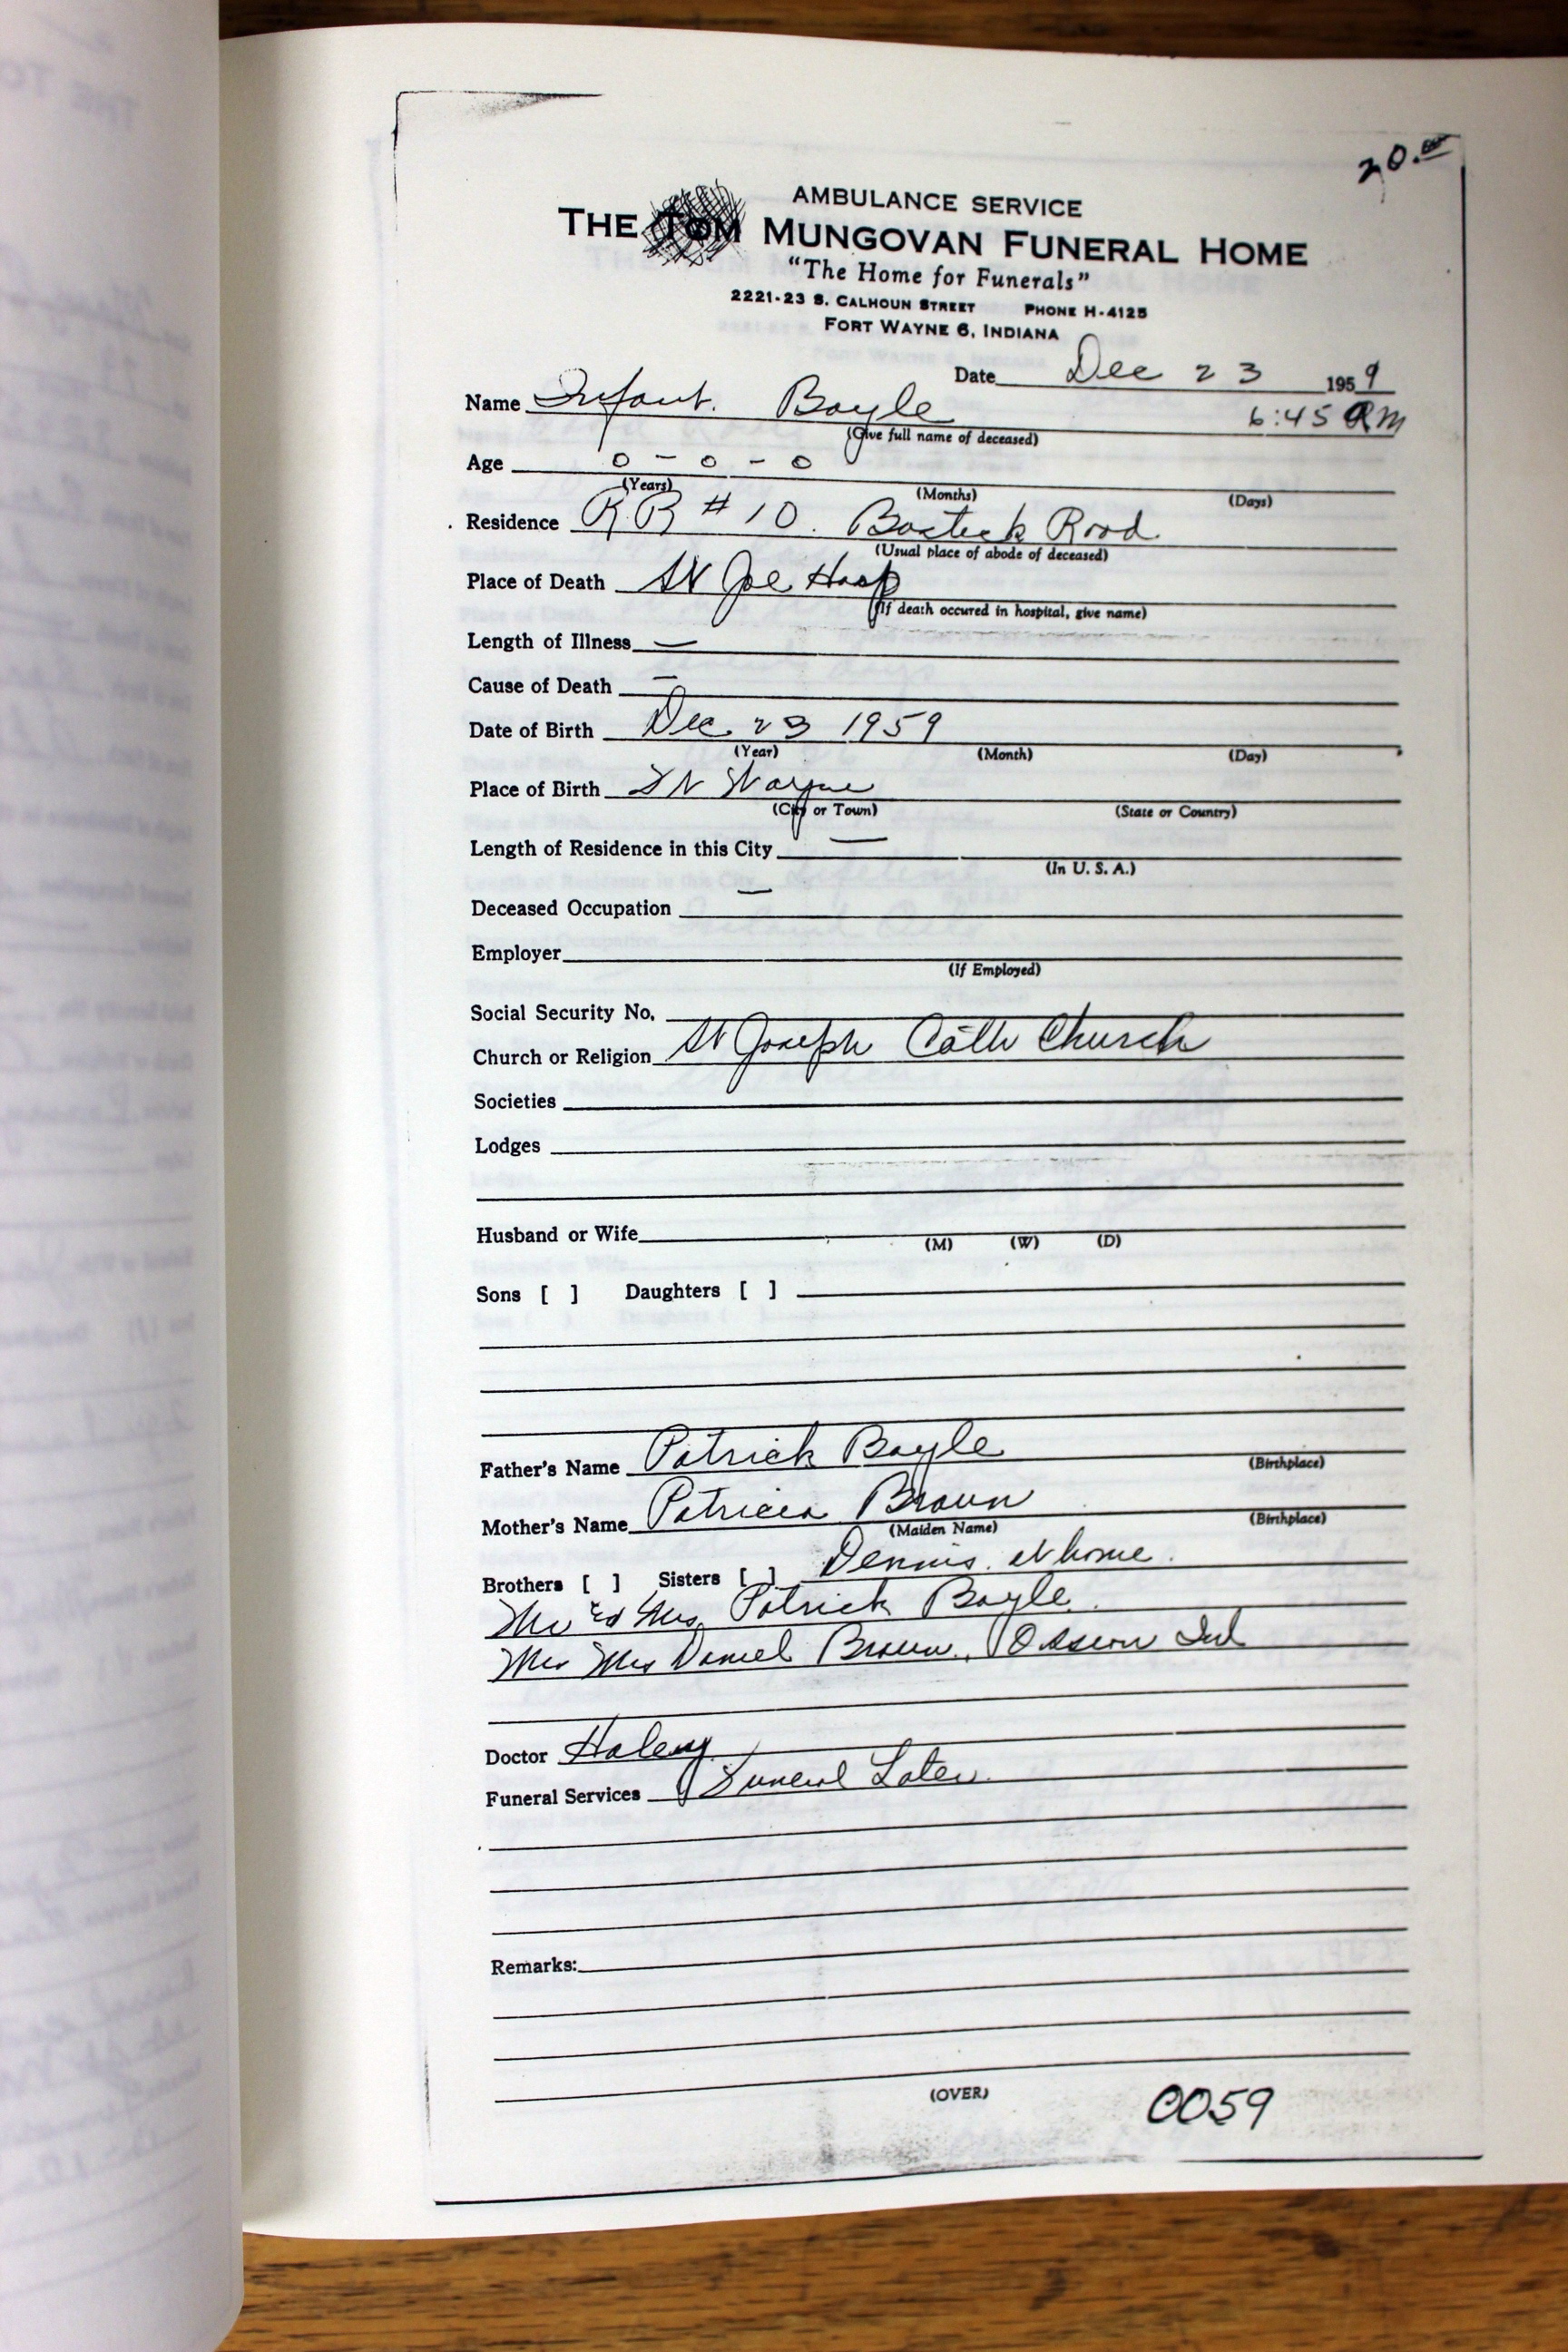 20.00
AMBULANCE SERVICE
THE TOM MUNGOVAN FUNERAL HOME
"The Home for Funerals"
2221-23 S. CALHOUN STREET PHONE H-4125
FORT WAYNE 6, INDIANA
Date Dec 23 1959
Name Infant. Boyle 6:45 AM
(Give full name of deceased)
Age 0 - 0 - 0
(Years) (Months) (Days)
Residence RR #10. Bostick Road
(Usual place of abode of deceased)
Place of Death St Joe Hosp
(If death occured in hospital, give name)
Length of Illness —
Cause of Death —
Date of Birth Dec 23 1959
(Year) (Month) (Day)
Place of Birth Ft Wayne
(City or Town) (State or Country)
Length of Residence in this City —
(In U. S. A.)
Deceased Occupation —
Employer
(If Employed)
Social Security No.
Church or Religion St Joseph Cath Church
Societies
Lodges
Husband or Wife
(M) (W) (D)
Sons [ ] Daughters [ ]
Father's Name Patrick Boyle
(Birthplace)
Mother's Name Patricia Brown
(Maiden Name) (Birthplace)
Brothers [ ] Sisters [ ] Dennis. at home.
Mr & Mrs Patrick Boyle.
Mr Mrs Daniel Brown, Ossian Ind
Doctor Haley
Funeral Services Funeral Later.
Remarks:
(OVER)
0059